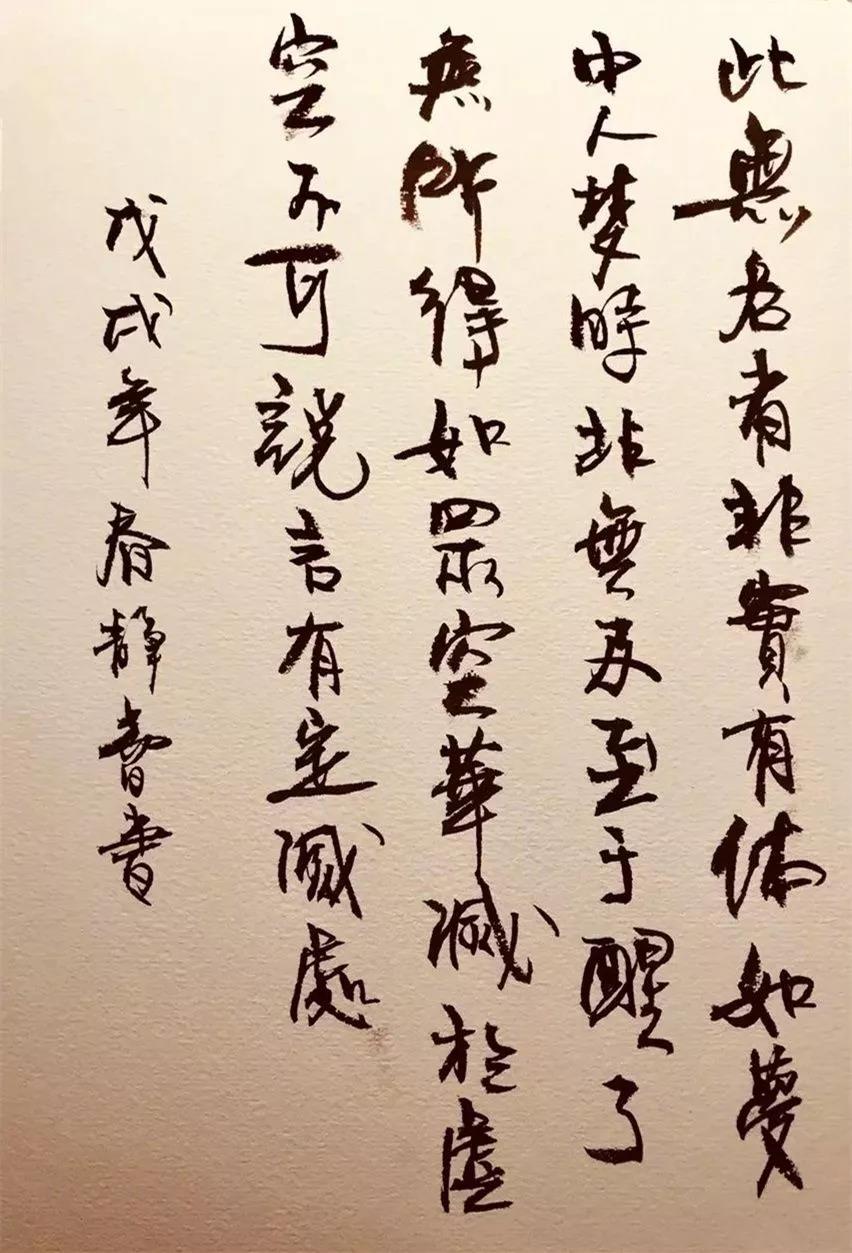 此無名者非實有体如夢
中人梦時非無及至于醒了
無所得如眾空華滅於虛
空不可說言有定滅處
戊戌年春靜書